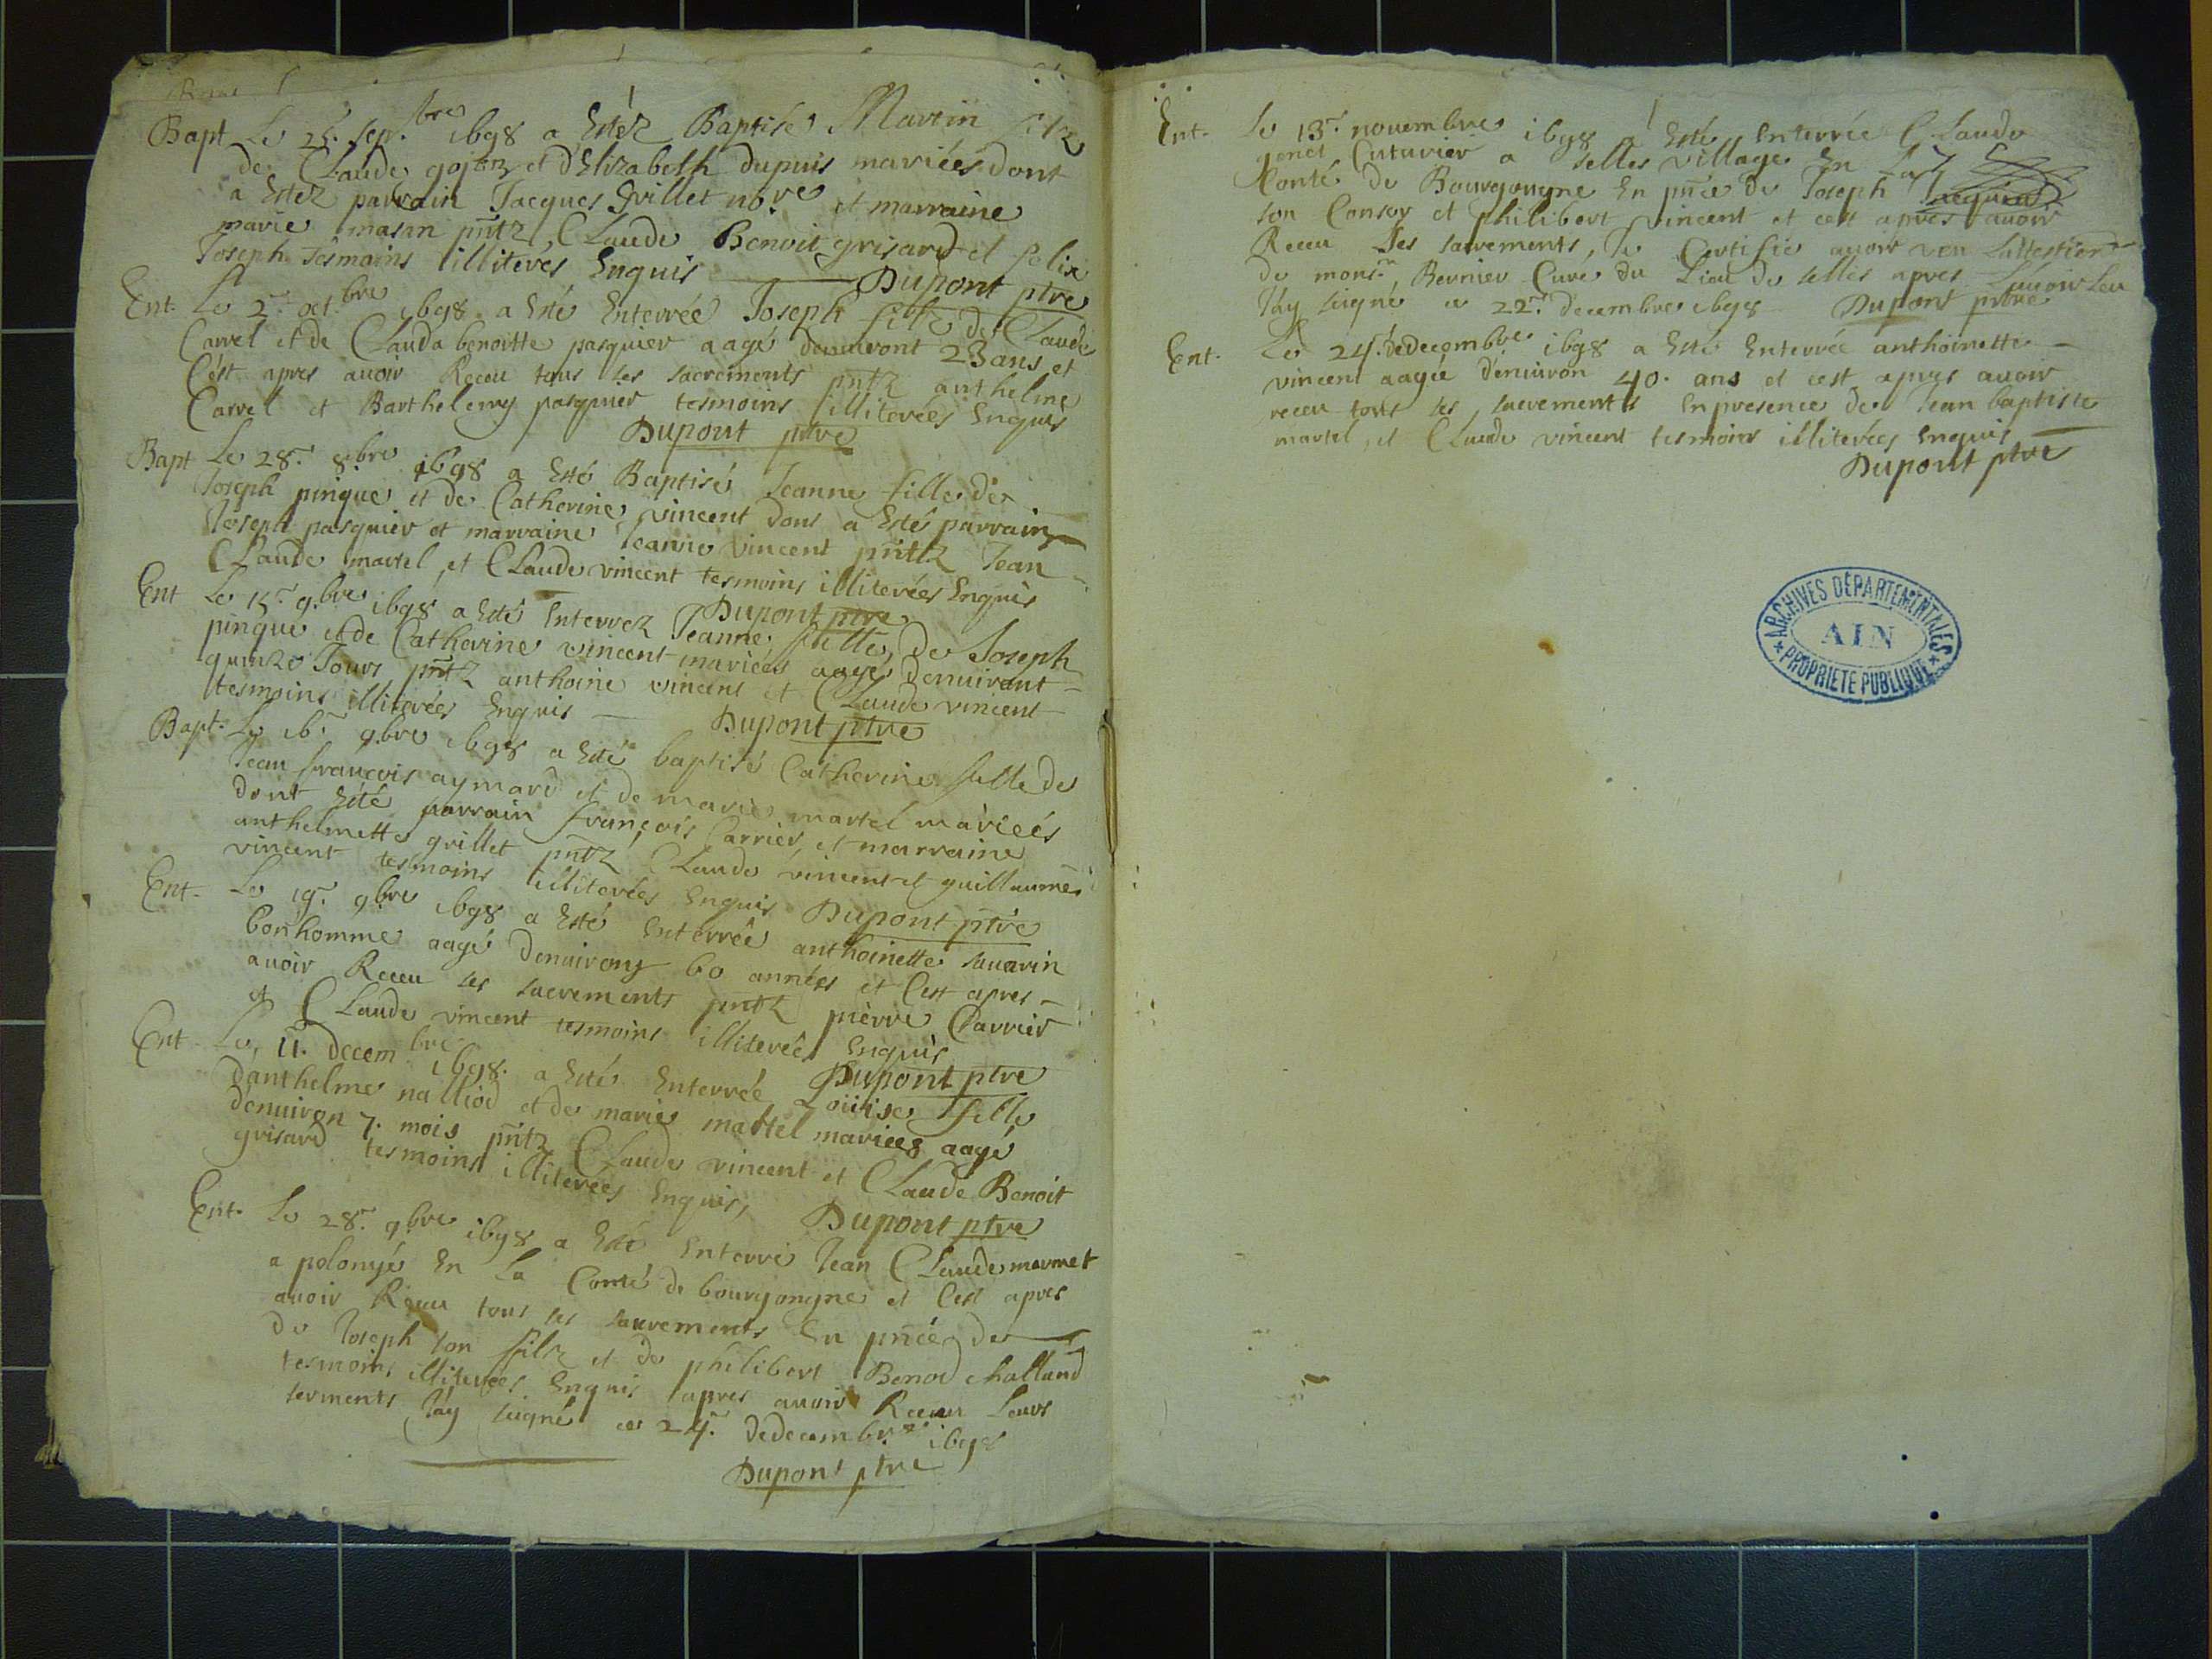 Bapt Le 25. sep.bre 1698 a Estéz Baptisé Martin filz
de Claude gojoz et d'Elizabeth dupuis mariées dont
a Estez parrain Jacques Grillet no.re et marraine
marie masan pntz Claude Benoit grisard et felix
Joseph tesmoins illiteres Enquis Dupont ptre
Ent. Le 2.e oct.bre 1698 a Esté Enterrée Joseph filz de Claude
Carrel et de Clauda benoitte pasquier aagé denuiront 23 ans et
C'est apres auoir Receu tous les sacrements pntz anthelme
Carrel et Barthelemy pasquier tesmoins illiterées Enquis
Dupont ptre
Bapt Le 28.e 8.bre 1698 a Esté Baptisé Jeanne fille de
Joseph pinque et de Catherine vincent dont a Esté parrain
Joseph pasquier et marraine Jeanne vincent pntz Jean
Claude martel, et Claude vincent tesmoins illiterées Enquis
Dupont ptre
Ent Le 15.e 9.bre 1698 a Esté Enterrez Jeanne fille de Joseph
pinque et de Catherine vincent mariées aagé denuiront
quinze Jours pntz anthoine vincent et Claude vincent
tesmoins illiterées Enquis Dupont ptre
Bapt. Le 16.e 9.bre 1698 a Esté baptisé Catherine fille de
Jean francois aymard et de marie martel mariées
dont Esté parrain françois Carrier, et marraine
anthelmette grillet pntz Claude vincent et guillaume
vincent tesmoins illiterées Enquis Dupont ptre
Ent. Le 19.e 9.bre 1698 a Esté Enterrée anthoinette sauarin
bonhomme aagé denuirong 60 années et C'est apres
auoir Receu les sacrements pntz pierre Carrier
et Claude vincent tesmoins illiterées Enquis
Dupont ptre
Ent Le, 11. decem.bre 1698. a Esté Enterrée Loüise fille
d'anthelme nalliod et de marie martel mariées aagé
denuiron 7. mois pntz Claude vincent et Claude Benoit
grisard tesmoins illiterées Enquis, Dupont ptre
Ent. Le 28.e 9.bre 1698 a Esté Enterré Jean Claude mermet
a polonyé En La Conté de bourgongne et C'est apres
auoir Receu tous les sacrements En pnce de
de Joseph son filz et de philibert Benod challand
tesmoins illiterées Enquis apres auoir Receu Leurs
serments J'ay signé ce 24.e de decembre 1698
Dupont ptre
Ent. Le 13.e nouembre 1698 a Esté Enterrée Claude
gonet Cuturier a selles village En La
Conté de Bourgongne En pnce de Joseph Jacquier
son Consor et philibert vincent et cest apres auoir
Receu les sacrements, Je Certifie auoir veu L'attestion
de mons.r Bernier Curé du Lieu de selles apres L'auoir Leu
J'ay signé ce 22.e decembre 1698 Dupont prtre
Ent. Le 24. de decembre 1698 a Esté Enterrée anthoinette
vincent aagée d'enuiron 40. ans et cest apres auoir
receu tous les sacrements En presence de Jean baptiste
martel, et Claude vincent tesmoins illiterées Enquis
Dupont ptre
ARCHIVES DÉPARTEMENTALES
AIN
PROPRIÉTÉ PUBLIQUE